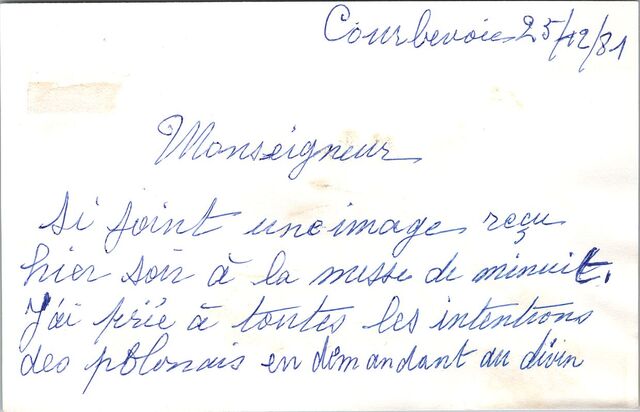 Courbevoie 25/12/81
Monseigneur
si joint une image reçu
hier soir à la messe de minuit.
J'ai prié à toutes les intentions
des polonais en démandant au divin